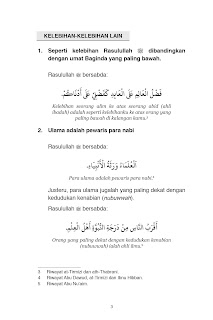 KELEBIHAN-KELEBIHAN LAIN
1. Seperti kelebihan Rasulullah ﷺ dibandingkan
dengan umat Baginda yang paling bawah.
Rasulullah ﷺ bersabda:
فَضْلُ الْعَالِمِ عَلَى الْعَابِدِ كَفَضْلِيْ عَلَى أَدْنَاكُمْ.
Kelebihan seorang alim ke atas seorang abid (ahli
ibadah) adalah seperti kelebihanku ke atas orang yang
paling bawah di kalangan kamu.³
2. Ulama adalah pewaris para nabi
Rasulullah ﷺ bersabda:
الْعُلَمَاءُ وَرَثَةُ الْأَنْبِيَاءِ.
Para ulama adalah pewaris para nabi.⁴
Justeru, para ulama jugalah yang paling dekat dengan
kedudukan kenabian (nubuwwah).
Rasulullah ﷺ bersabda:
أَقْرَبُ النَّاسِ مِنْ دَرَجَةِ النُّبُوَّةِ أَهْلُ الْعِلْمِ.
Orang yang paling dekat dengan kedudukan kenabian
(nubuwwah) ialah ahli ilmu.⁵
3 Riwayat at-Tirmizi dan ath-Thabrani.
4 Riwayat Abu Dawud, at-Tirmizi dan Ibnu Hibban.
5 Riwayat Abu Nu'aim.